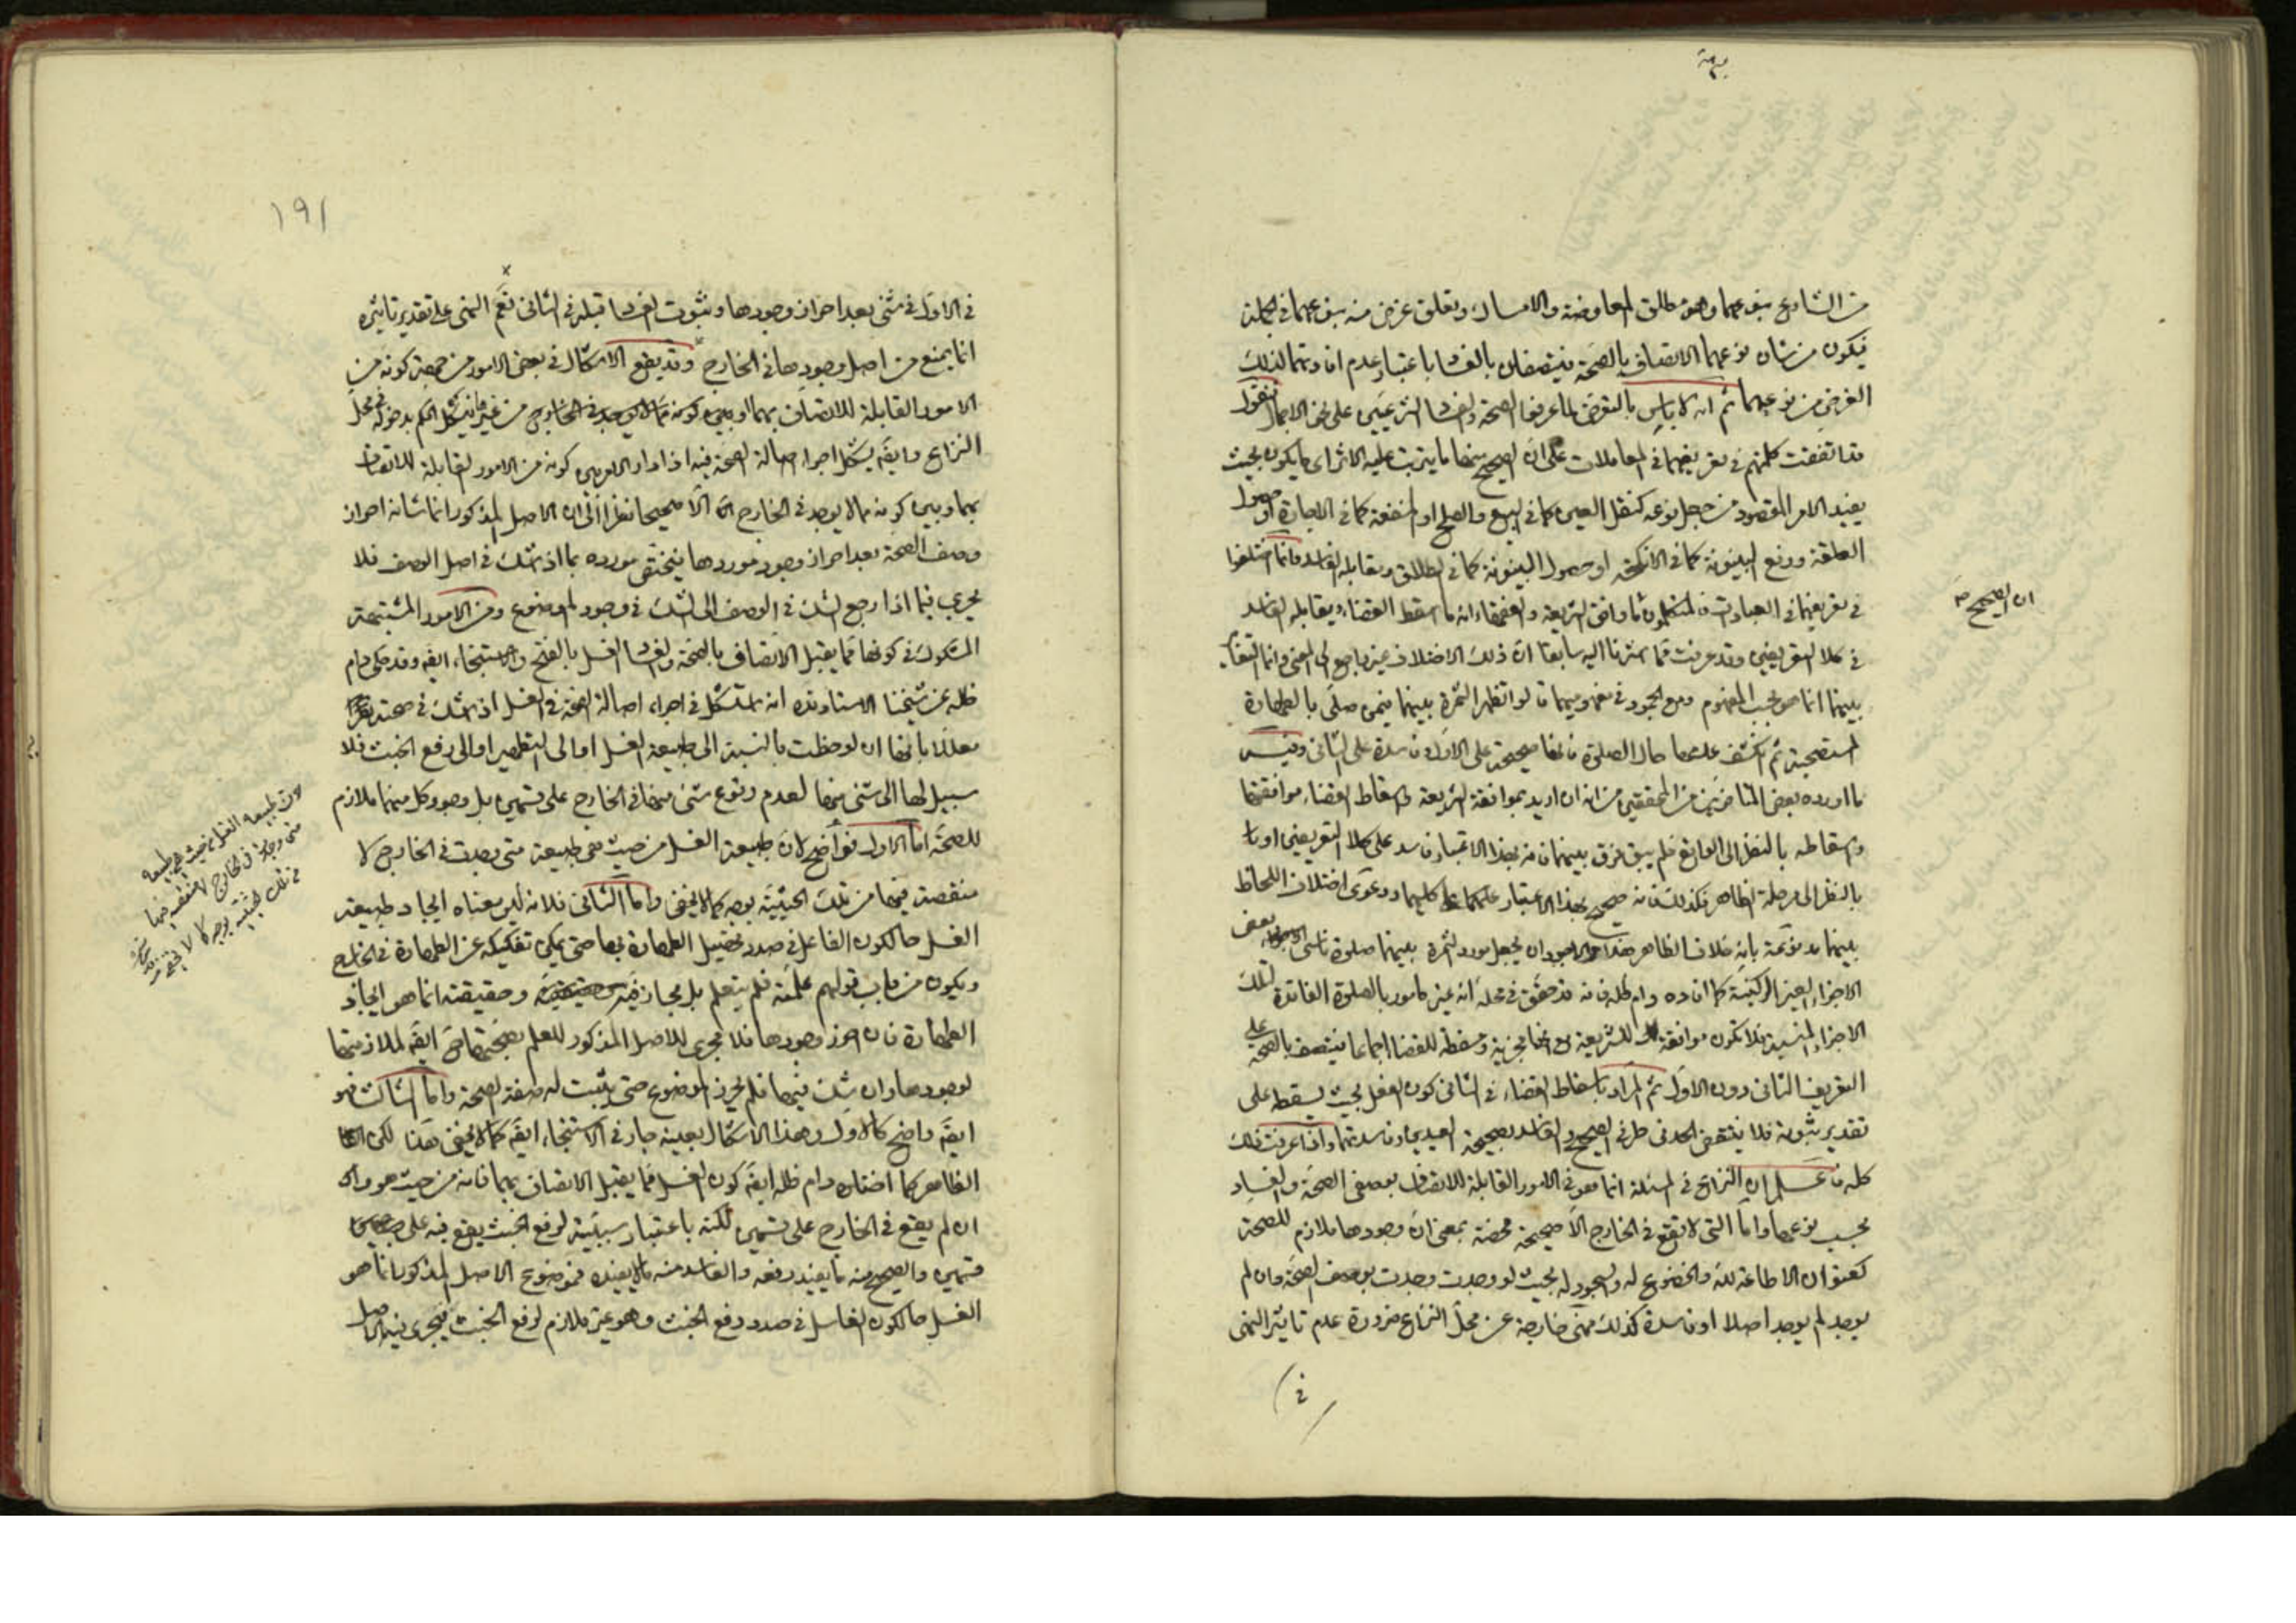 من الشارع بنوعهما وهو مطلق المعاوضة والامساك وتعلق غرض منه بنوعهما في الجملة
فيكون من شان نوعهما الاتصاف بالصحة فيتصفان بالفساد باعتبار عدم افادتهما لذلك
الغرض من نوعهما ثم انه لا باس بالتعرض لما عرفوا الصحة والفساد الشرعيين على نحو الاجمال فنقول
قد اتفقت كلمتهم في تعريفهما في المعاملات على ان الصحيح منها ما يترتب عليه الاثر اى ما يكون بحيث
يفيد الامر المقصود من جعل نوعه كنقل العين كما في البيع والصلح او المنفعة كما في الاجارة او حصول
العلقة ورفع البينونة كما في الانكحة او حصول البينونة كما في الطلاق ويقابله الفاسد وانما اختلفوا
في تعريفهما في العبادات فالمتكلمون ما وافق الشريعة والفقهاء انه ما اسقط القضاء ويقابله الفاسد
ان الصحيح صح
في كلا التعريفين وقد عرفت مما اشرنا اليه سابقا ان ذلك الاختلاف غير راجع الى المعنى وانما التغاير
بينهما انما هو بحسب المفهوم ومع الجمود في مفهوميهما قالوا تظهر الثمرة بينهما فيمن صلى بالطهارة
المستصحبة ثم انكشف عدمها حال الصلوة فانها صحيحة على الاول وفاسدة على الثاني وفيه
ما اورده بعض المتاخرين من المحققين من انه ان اريد بموافقة الشريعة واسقاط القضاء موافقتها
واسقاطه بالنظر الى الواقع فلم يبق فرق بينهما فانه بهذا الاعتبار فاسد على كلا التعريفين او
بالنظر الى مرحلة الظاهر فكذلك فانه صحيح بهذا الاعتبار على كليهما ودعوى اختلاف اللحاظ
بينهما مدفوعة بانه خلاف الظاهر هذا والاجود ان يجعل مورد الثمرة بينهما صلوة ناسي بعض
الاجزاء الغير الركنية كما افاده دام ظله فانه قد حقق في محله انه غير مامور بالصلوة الفاقدة لتلك
الاجزاء المنسية فلا تكون موافقة للشريعة مع انها مجزية ومسقطة للقضاء اجماعا فيتصف بالصحة على
التعريف الثاني دون الاول ثم المراد باسقاط القضاء في الثاني كون الفعل بحيث يسقطه على
تقدير ثبوته فلا ينتقض الحد في طرفى الصحيح والفاسد بصحيحة العيدين وفاسدتهما واذا عرفت ذلك
كله فاعلم ان النزاع في المسئلة انما هو في الامور القابلة للاتصاف بوصفى الصحة والفساد
بحسب نوعها واما التي لا تقع في الخارج الا صحيحة محضة بمعنى ان وجودها ملازم للصحة
كعنوان الاطاعة لله والخضوع له والسجود له بحيث لو وجدت وجدت بوصف الصحة وان لم
يوجد لم يوجد اصلا او فاسدة كذلك فهى خارجة عن محل النزاع ضرورة عدم تاثير النهى
في
١٩١
في الاول في شئ بعد احراز وجودها وثبوت الفساد قبله في الثاني نعم النهى على تقدير تاثيره
انما يمنع من اصل وجودها في الخارج وقد يقع الاشكال في بعض الامور من جهة كونه من
الامور القابلة للاتصاف بهما او بين كونه مما لا يوجد في الخارج فيشكل الحكم بدخوله في محل
النزاع وايضا يشكل اجراء اصالة الصحة فيه اذا دار الامر بين كونه من الامور القابلة للاتصاف
بهما وبين كونه مما لا يوجد في الخارج الا صحيحا نظرا الى ان الاصل المذكور انما شانه احراز
وصف الصحة بعد احراز وجود موردها فيختص مورده بما اذا شك في اصل الوصف فلا
يجرى فيما اذا رجع الشك في الوصف الى الشك في وجود الموضوع ومن الامور المشتبهة
المشكوك في كونها مما يقبل الاتصاف بالصحة والفساد الغسل بالفتح والاستنجاء ايضا وقد حكى دام
ظله عن شيخنا الاستاد قده انه استشكل في اجراء اصالة الصحة في الغسل اذا شك في صحته
معللا بانها ان لوحظت بالنسبة الى طبيعة الغسل او الى التطهير او الى رفع الخبث فلا
سبيل لها الى شئ منها لعدم وقوع شئ منها في الخارج على قسمين بل وجود كل منهما ملازم
للصحة اما الاول فواضح لان طبيعة الغسل من حيث هى طبيعة متى وجدت في الخارج لا
منقصة فيها من تلك الحيثية بوجه كما لا يخفى واما الثاني فلانه ليس معناه ايجاد طبيعة
الغسل حالكون الفاعل في صدد تحصيل الطهارة بها حتى يمكن تفكيكه عن الطهارة في الخارج
ويكون من باب قولهم علمته فلم يتعلم بل مجاز فيه وحقيقته انما هو ايجاد
الطهارة فان احرز وجودها فلا مجرى للاصل المذكور للعلم بصحتها ايضا لملازمتها
لوجودها وان شك فيها فلم يحرز الموضوع حتى يثبت له صفة الصحة واما الثالث فهو
ايضا واضح كالاول وهذا الاشكال بعينه جار في الاستنجاء ايضا كما لا يخفى هذا لكن
الظاهر كما افاده دام ظله ايضا كون الغسل مما يقبل الاتصاف بهما فانه من حيث هو وان
ان لم يقع في الخارج على قسمين لكنه باعتبار سببية لرفع الخبث يقع فيه على
قسمين والصحيح منه ما يفيد رفعه والفاسد منه ما لا يفيده فموضوع الاصل المذكور انما هو
الغسل حالكون الغاسل في صدد رفع الخبث وهو غير ملازم لرفع الخبث فيجرى فيه الاصل